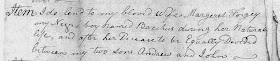 Item I do lend to my beloved Wife Margaret Forgey
my Negro boy named Bacchus during her Natural
life, and after her Decease to be Equally Divided
between my two sons Andrew and John